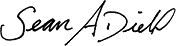 Sean A Diehl